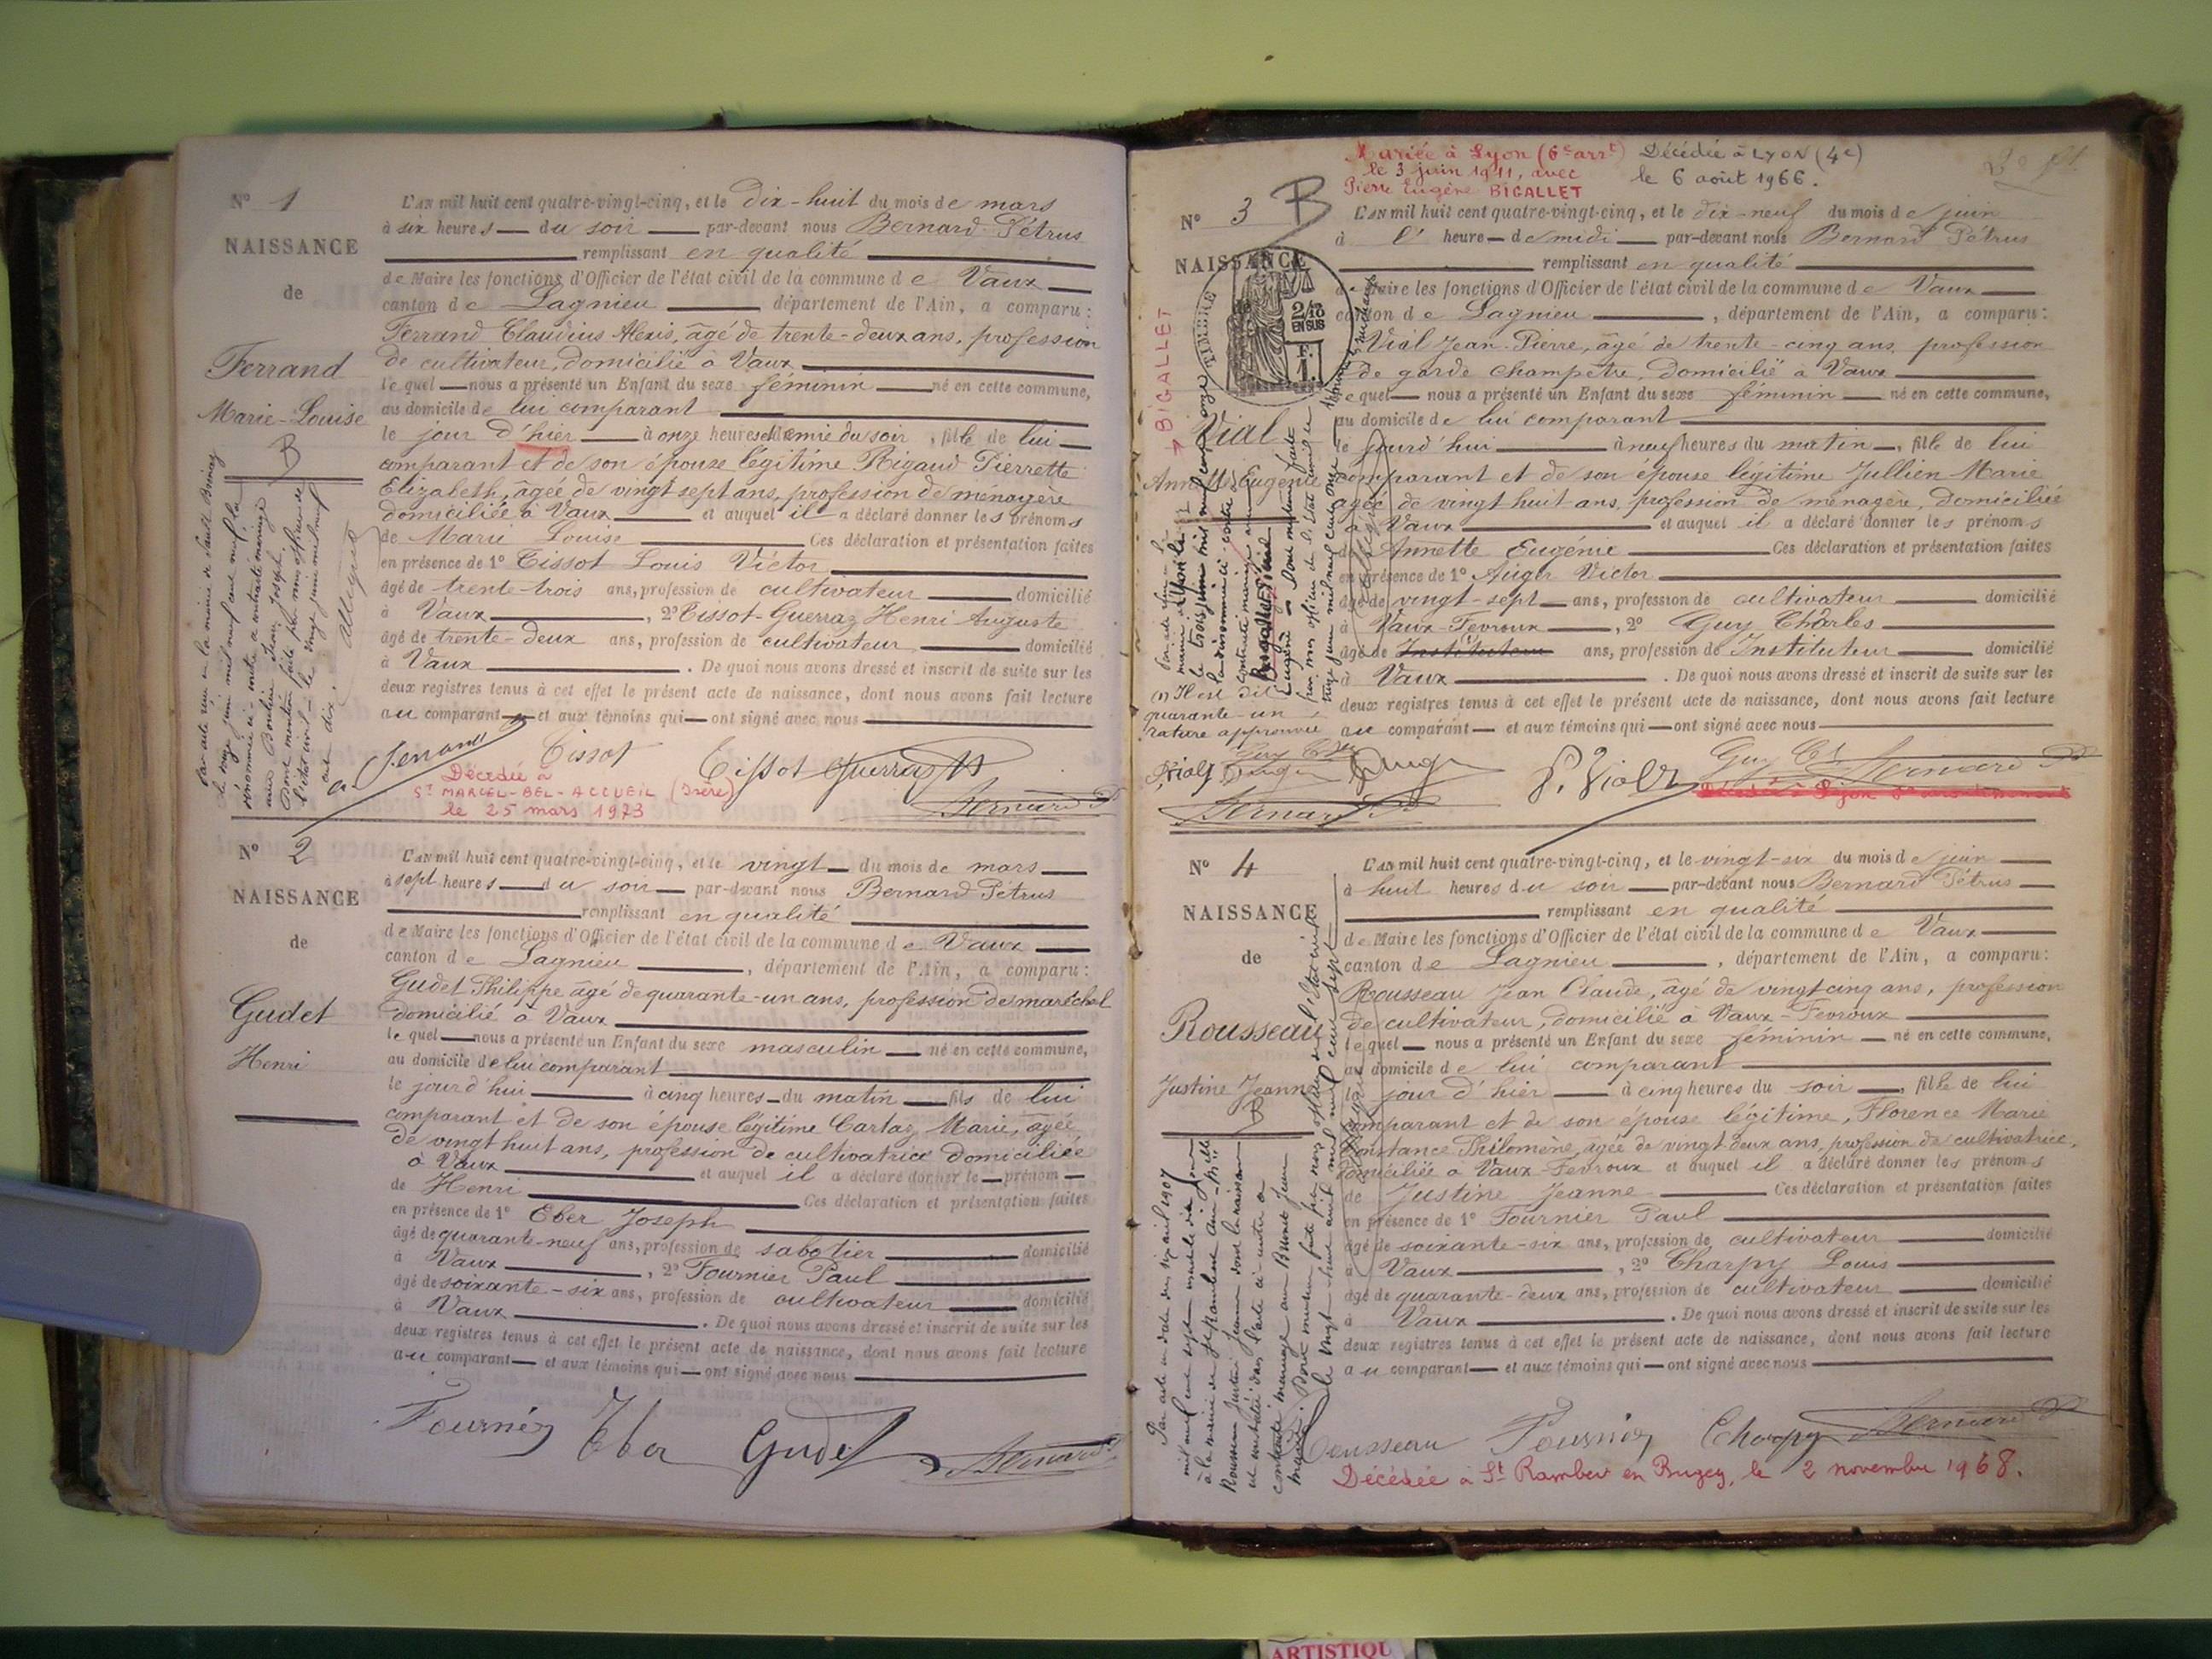 N° 1
NAISSANCE
de
Ferrand
Marie-Louise
B
L'AN mil huit cent quatre-vingt-cinq, et le dix-huit du mois de mars
à six heures du soir par-devant nous Bernard Pétrus
remplissant en qualité
de Maire les fonctions d'Officier de l'état civil de la commune de Vaux
canton de Lagnieu département de l'Ain, a comparu:
Ferrand Claudius Alexis, âgé de trente-deux ans, profession
de cultivateur, domicilié à Vaux
lequel nous a présenté un Enfant du sexe féminin né en cette commune,
au domicile de lui comparant
le jour d'hier à onze heures et demie du soir, fille de lui
comparant et de son épouse légitime Rigaud Pierrette
Elizabeth, âgée de vingt sept ans, profession de ménagère
domiciliée à Vaux et auquel il a déclaré donner les prénoms
de Marie Louise Ces déclaration et présentation faites
en présence de 1° Tissot Louis Victor
âgé de trente-trois ans, profession de cultivateur domicilié
à Vaux, 2° Tissot-Guerraz Henri Auguste
âgé de trente-deux ans, profession de cultivateur domicilié
à Vaux. De quoi nous avons dressé et inscrit de suite sur les
deux registres tenus à cet effet le présent acte de naissance, dont nous avons fait lecture
au comparant et aux témoins qui ont signé avec nous
Ferrand Tissot Tissot Guerraz H
Bernard P
Décédée à
St MARCEL-BEL-ACCUEIL (Isère)
le 25 mars 1973
N° 2
NAISSANCE
de
Gudet
Henri
L'AN mil huit cent quatre-vingt-cinq, et le vingt du mois de mars
à sept heures du soir par-devant nous Bernard Pétrus
remplissant en qualité
de Maire les fonctions d'Officier de l'état civil de la commune de Vaux
canton de Lagnieu, département de l'Ain, a comparu:
Gudet Philippe âgé de quarante-un ans, profession de maréchal
domicilié à Vaux
lequel nous a présenté un Enfant du sexe masculin né en cette commune,
au domicile de lui comparant
le jourd'hui à cinq heures du matin fils de lui
comparant et de son épouse légitime Cartaz Marie, âgée
de vingt huit ans, profession de cultivatrice domiciliée
à Vaux et auquel il a déclaré donner le prénom
de Henri Ces déclaration et présentation faites
en présence de 1° Eber Joseph
âgé de quarante-neuf ans, profession de sabotier domicilié
à Vaux, 2° Fournier Paul
âgé de soixante-six ans, profession de cultivateur domicilié
à Vaux. De quoi nous avons dressé et inscrit de suite sur les
deux registres tenus à cet effet le présent acte de naissance, dont nous avons fait lecture
au comparant et aux témoins qui ont signé avec nous
Fournier Eber Gudet Bernard
Mariée à Lyon (6e arrt)
le 3 juin 1911, avec
Pierre Eugène BIGALLET
Décédée à LYON (4e)
le 6 août 1966.
N° 3 B
NAISSANCE
TIMBRE
2/10
EN SUS
F.
1.
BIGALLET
Vial
Annette Eugénie
L'AN mil huit cent quatre-vingt-cinq, et le dix-neuf du mois de juin
à l' heure de midi par-devant nous Bernard Pétrus
remplissant en qualité
de Maire les fonctions d'Officier de l'état civil de la commune de Vaux
canton de Lagnieu, département de l'Ain, a comparu:
Vial Jean-Pierre, âgé de trente-cinq ans, profession
de garde champêtre, domicilié à Vaux
lequel nous a présenté un Enfant du sexe féminin né en cette commune,
au domicile de lui comparant
le jourd'hui à neuf heures du matin, fille de lui
comparant et de son épouse légitime Jullien Marie
âgée de vingt huit ans, profession de ménagère, domiciliée
à Vaux et auquel il a déclaré donner les prénoms
de Annette Eugénie Ces déclaration et présentation faites
en présence de 1° Auger Victor
âgé de vingt-sept ans, profession de cultivateur domicilié
à Vaux-Fevroux, 2° Guy Charles
âgé de Instituteur ans, profession de Instituteur domicilié
à Vaux. De quoi nous avons dressé et inscrit de suite sur les
deux registres tenus à cet effet le présent acte de naissance, dont nous avons fait lecture
au comparant et aux témoins qui ont signé avec nous
(1) Il est dit
quarante-un
rature approuvée
Vial Guy Ch Auger
Bernard P
Auger P. Vial Guy Ch Bernard P
N° 4
NAISSANCE
de
Rousseau
Justine Jeanne
B
L'AN mil huit cent quatre-vingt-cinq, et le vingt-six du mois de juin
à huit heures du soir par-devant nous Bernard Pétrus
remplissant en qualité
de Maire les fonctions d'Officier de l'état civil de la commune de Vaux
canton de Lagnieu, département de l'Ain, a comparu:
Rousseau Jean Claude, âgé de vingt cinq ans, profession
de cultivateur, domicilié à Vaux-Fevroux
lequel nous a présenté un Enfant du sexe féminin né en cette commune,
au domicile de lui comparant
jour d'hier à cinq heures du soir, fille de lui
comparant et de son épouse légitime, Florence Marie
Constance Philomène, âgée de vingt deux ans, profession de cultivatrice,
domiciliée à Vaux-Fevroux et auquel il a déclaré donner les prénoms
de Justine Jeanne Ces déclaration et présentation faites
en présence de 1° Fournier Paul
âgé de soixante-six ans, profession de cultivateur domicilié
à Vaux, 2° Charpy Louis
âgé de quarante-deux ans, profession de cultivateur domicilié
à Vaux. De quoi nous avons dressé et inscrit de suite sur les
deux registres tenus à cet effet le présent acte de naissance, dont nous avons fait lecture
au comparant et aux témoins qui ont signé avec nous
Rousseau Fournier Charpy Bernard P
Décédée à St Rambert en Bugey, le 2 novembre 1968.
ARTISTIQU